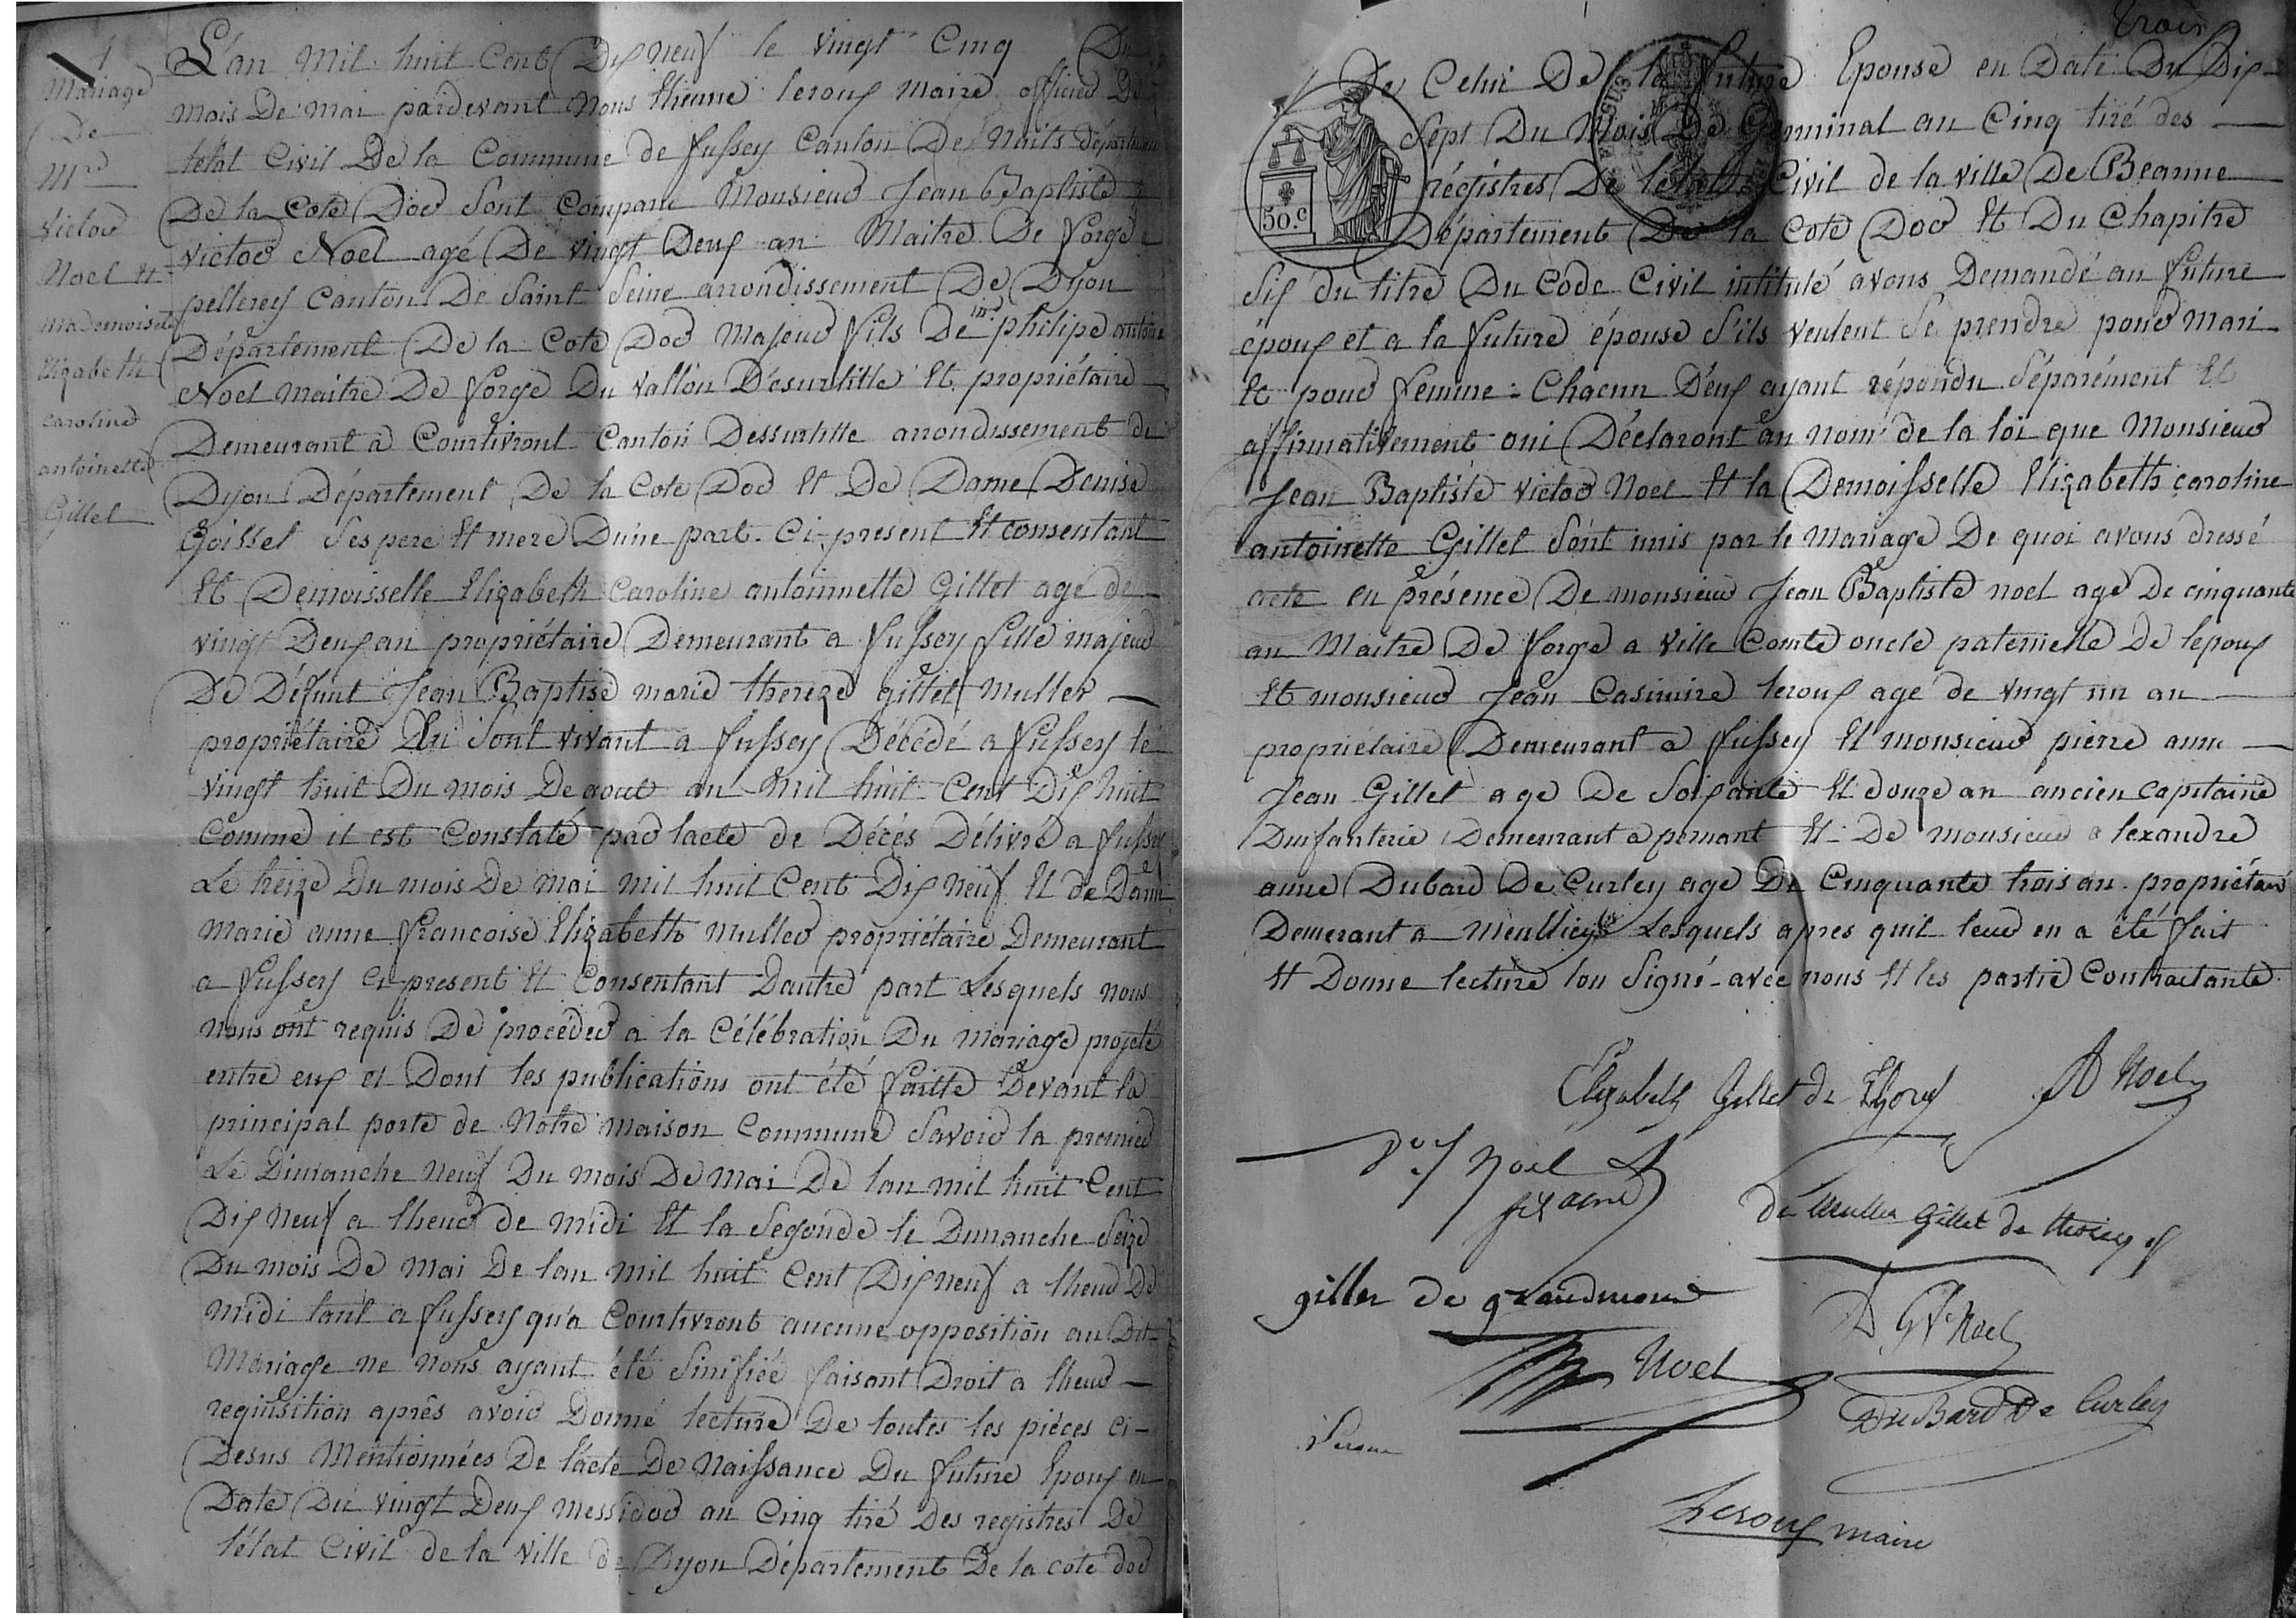 1
Mariage
De
Mr
Victor
Noel Et
Mademoiselle
Elizabeth
caroline
antoinette
Gillet
L'an Mil huit Cent Dix Neuf le vingt Cinq Du
mois De mai pardevant Nous Etienne leroux Maire officier De
letat Civil De la Commune de fussey Canton De Nuits Départemen
De la Cote Dor Sont Comparu Monsieur Jean Baptiste
victor Noel agé De vingt Deux an Maitre De forge a
pellerey Canton De Saint Seine arrondissement De Dijon
Département De la Cote Dor Majeur fils De Mr philipe antoine
Noel maitre De forge Du vallon Desurtille Et propriétaire
Demeurant a Courtivront Canton Dessurtille arrondissement de
Dijon Département De la Cote Dor Et De Dame Denise
Goisset Ses pere Et mere Dune part Ci-present Et consentant
Et Demoisselle Elizabeth Caroline antoinnette Gillet age de
vingt Deux an propriétaire Demeurant a fussey fille majeur
De Défunt Jean Baptise marie thereze gillet Muller
propriétaire Lui Sont vivant a fussey Décédé a fussey le
vingt huit Du mois De aout an Mil huit Cent Dix huit
Comme il est Constaté par lacte de Décès Délivré a fussey
Le treize Du mois De Mai Mil huit Cent Dix Neuf Et de Dame
Marie anne francoise Elizabeth Muller propriétaire Demeurant
a fussey Ci-present Et Consentant Dautre part Lesquels nous
Nous ont requis De procéder a la Célébration Du Mariage projeté
entre eux et Dont les publications ont été faitte Devant la
principal porte de Notre maison Commune Savoir la premier
Le Dimanche Neuf Du mois De Mai De lan mil huit Cent
Dix Neuf a lheur de midi Et la Segonde le Dimanche Seize
Du mois De Mai De lan Mil huit Cent Dix Neuf a lheur De
Midi tant a fussey qu'a Courtivront aucune opposition au Dit
Mariage ne Nous ayant été Sinifiée faisant Droit a lheur
requisition après avoir Donné lecture De toutes les pièces ci-
Desus Mentionnées De lacte De Naissance Du future Epoux en
Date Du vingt Deux Messidor an Cinq tiré Des registres De
l'état Civil de la ville de Dijon Département De la cote dor
trois
De Celui De la future Epouse en Date Du Dix-
Sept Du Mois De Germinal an Cinq tiré des
régistres De létat Civil de la ville De Beanne
Département De la Cote Dor Et Du Chapitre
Six du titre Du Code Civil intitulé avons Demandé au future
époux et a la future épouse S'ils veulent Se prendre pour Mari
Et pour femme - Chacun D'eux ayant répondu Séparément Et
affirmativement oui Déclaront au nom de la loi que Monsieur
Jean Baptiste victor Noel Et la Demoisselle Elizabeth caroline
antoinette Gillet Sont unis par le Mariage De quoi avons dressé
acte en présence De monsieur Jean Baptiste noel age De cinquante
an Maitre De forge a ville Comte oncle paternelle De lépoux
Et monsieur Jean Casimire leroux age de vingt un an
propriétaire Demeurant a fussey Et monsieur pierre anne
Jean Gillet age De Soixante Et douze an ancien capitaine
Dinfanterie Demeurant a pernant Et De monsieur alexandre
anne Dubard De Curley age De Cinquante trois an propriétaire
Demerant a Meulley Lesquels apres quil leur en a été fait
Et Donne lecture lon Signé avec nous Et les partie Contractante
Elizabeth Gillet de Thorey
Noel
Vor Noel
fils ainé
de Muller Gillet de thorey
gillet de grandmont
Noel
Noel
DuBard De Curley
Leroux maire
50.c